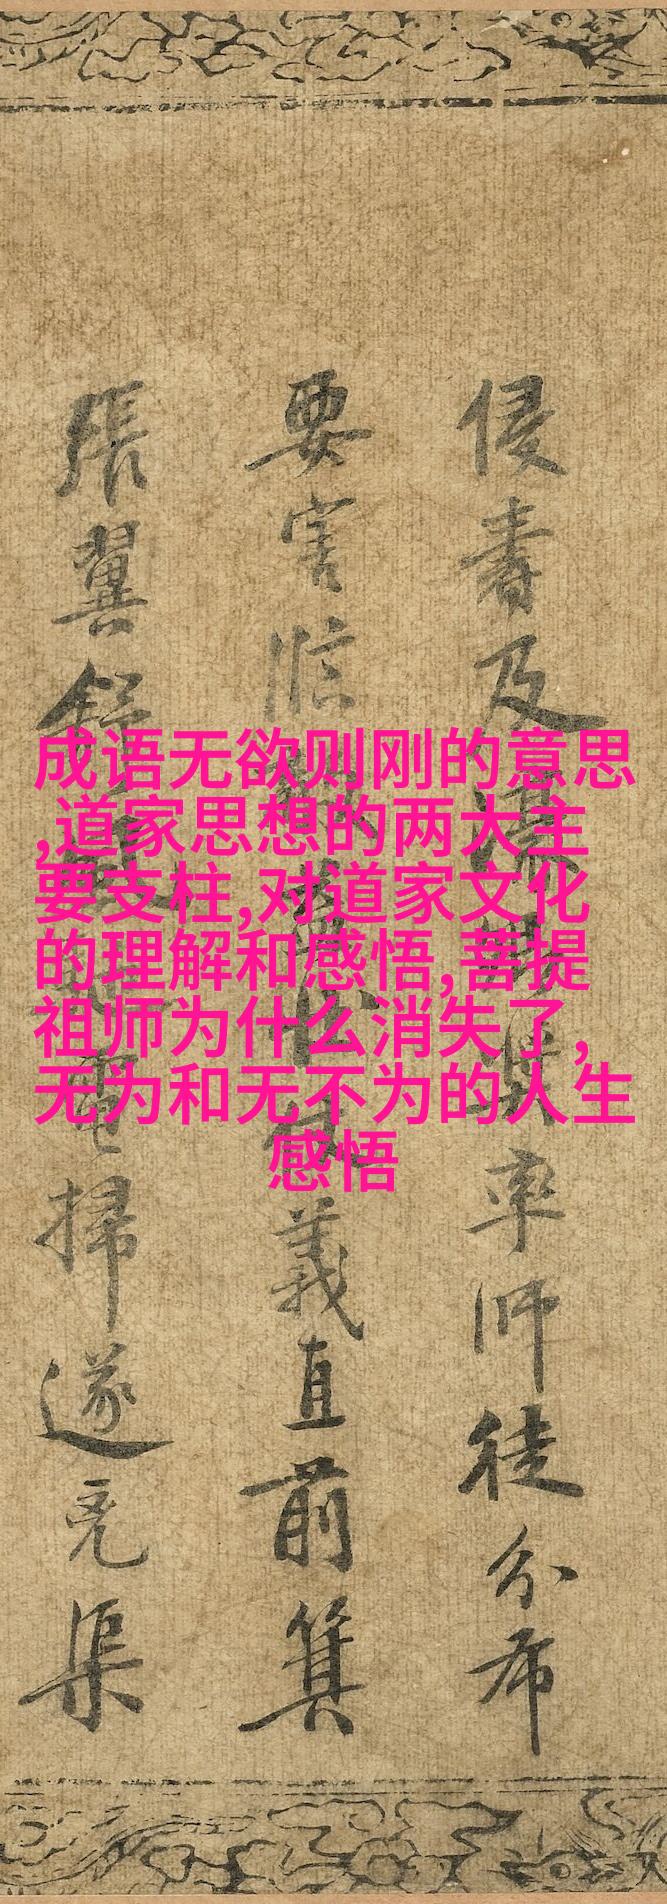 成语无欲则刚的意思
,道家思想的两大主
要支柱,对道家文化
的理解和感悟,菩提
祖师为什么消失了,
无为和无不为的人生
感悟
侵書及率師徒分布
要害臨義直前箕
張翼舒電掃遂渠